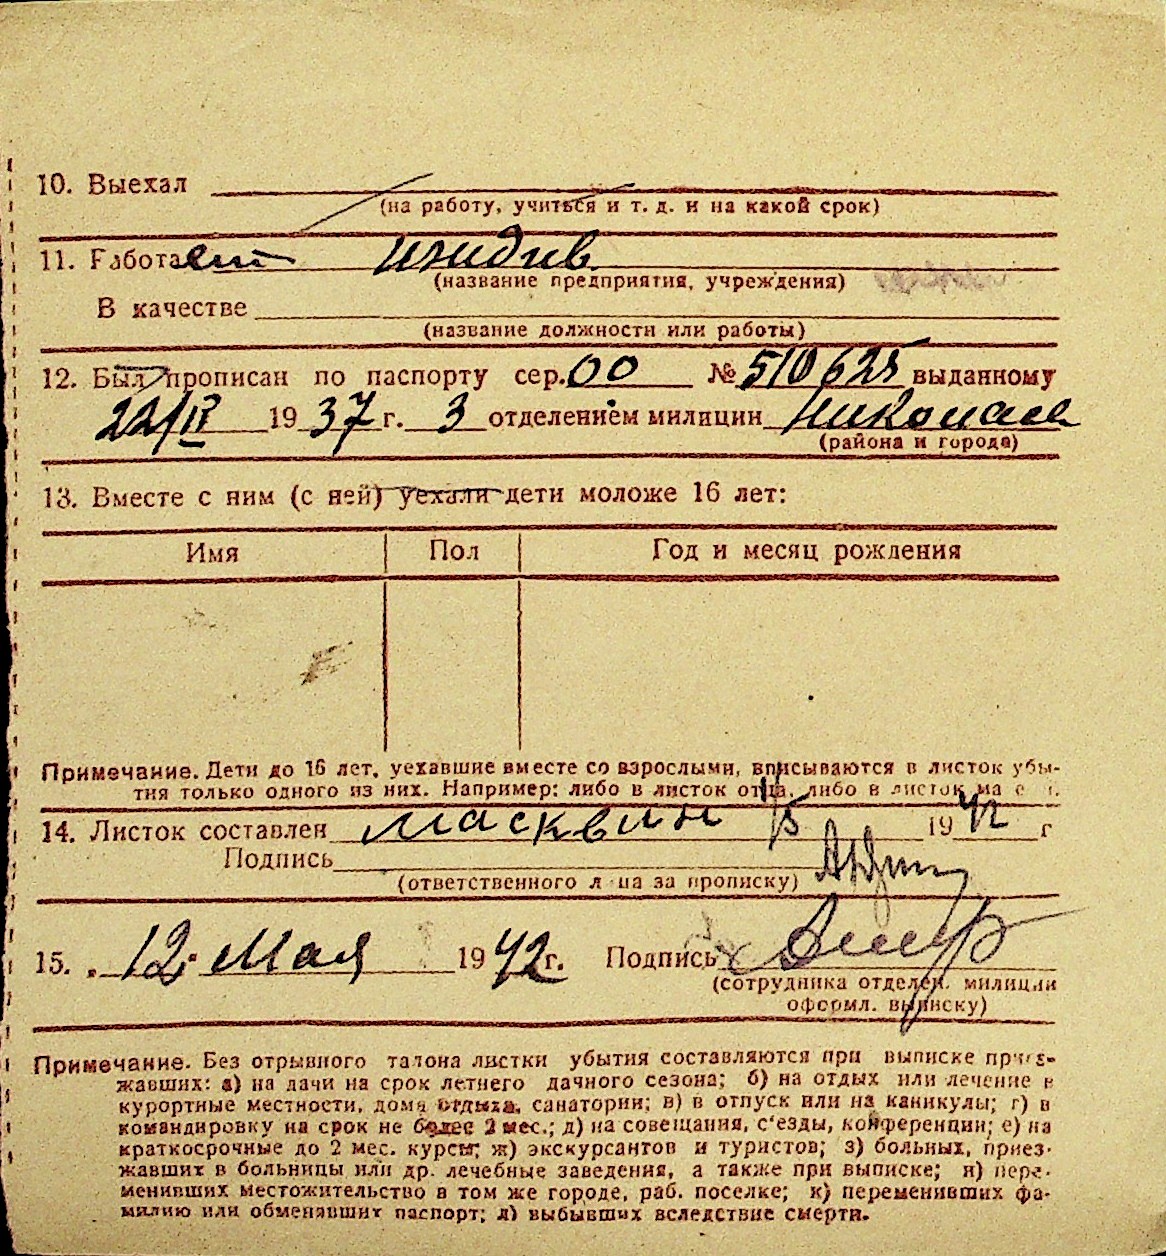 10. Выехал
(на работу, учиться и т. д. и на какой срок)
11. Работает иждив.
(название предприятия, учреждения)
В качестве
(название должности или работы)
12. Был прописан по паспорту сер. 00 № 510625 выданному
22/IV 1937 г. 3 отделением милиции Николаев
(района и города)
13. Вместе с ним (с ней) уехали дети моложе 16 лет:
Имя Пол Год и месяц рождения
Примечание. Дети до 16 лет, уехавшие вместе со взрослыми, вписываются в листок убы-
тия только одного из них. Например: либо в листок отца, либо в листок
14. Листок составлен 11/5 1942 г
Подпись
(ответственного лица за прописку)
15. 12 Мая 1942 г. Подпись
(сотрудника отделен. милиции
оформл. выписку)
Примечание. Без отрывного талона листки убытия составляются при выписке приез-
жавших: а) на дачи на срок летнего дачного сезона; б) на отдых или лечение в
курортные местности, дома отдыха, санатории; в) в отпуск или на каникулы; г) в
командировку на срок не более 2 мес.; д) на совещания, с'езды, конференции; е) на
краткосрочные до 2 мес. курсы; ж) экскурсантов и туристов; з) больных, приез-
жавших в больницы или др. лечебные заведения, а также при выписке; и) пере-
менивших местожительство в том же городе, раб. поселке; к) переменивших фа-
милию или обменявших паспорт; л) выбывших вследствие смерти.